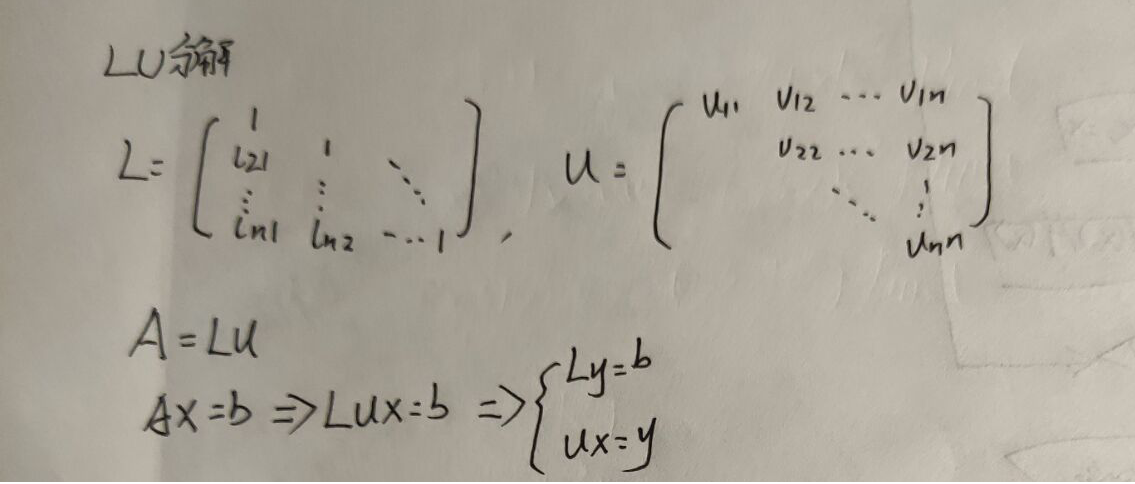 LU分解
L = [ 1
l21 1 ⋱
⋮ ⋮
ln1 ln2 ... 1 ] , U = [ u11 u12 ... u1n
u22 ... u2n
⋱ ⋮
unn ]
A = LU
Ax = b ⇒ LUx = b ⇒ { Ly = b
Ux = y